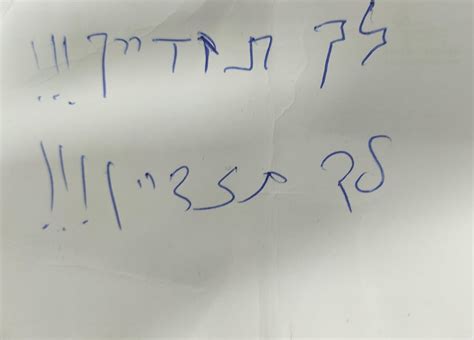 לך תזדיין!!!
לך תזדיין!!!